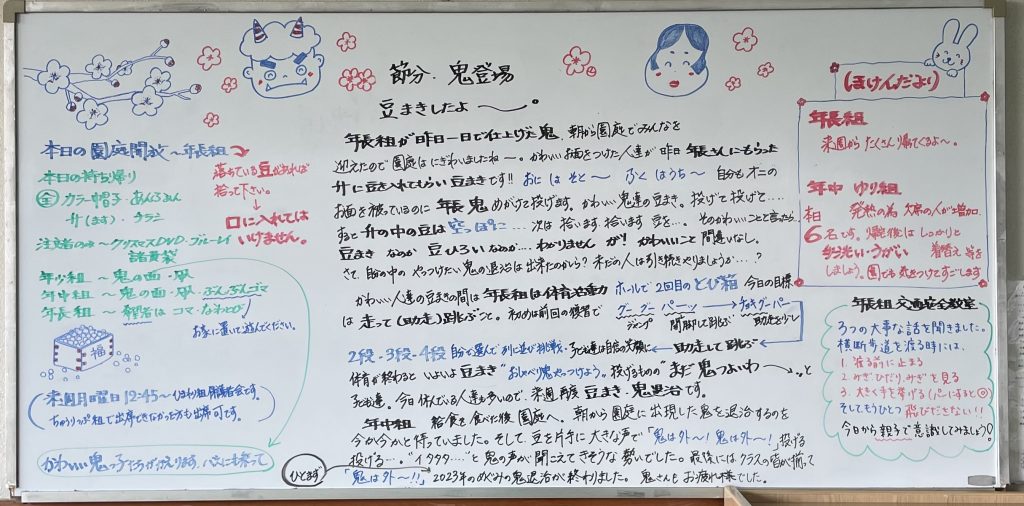 本日の園庭開放〜年長組
落ちている豆があれば
拾って下さい。
↓
口に入れては
いけません。
本日の持ち帰り
全 カラー帽子・あんしるまん
升(ます)・チラシ
注文者のみ〜クリスマスDVD・ブルーレイ
諸費袋
年少組〜鬼の面・凧
年中組〜鬼の面・凧・ぶんぶんゴマ
年長組〜希望者はコマ・なわとび
お家に置いて遊んでください。
福
来週月曜日12:45〜ひまわり組 保護者会です。
ちゅうりっぷ組で出席できなかった方も出席可です。
かわいい鬼っ子たちがかえります。バスにも乗って
節分・鬼登場
豆まきしたよ〜。
年長組が昨日一日で仕上げた鬼、朝から園庭でみんなを
迎えたので園庭はにぎわいましたね〜。かわいいお面をつけた人達が昨日年長さんにもらった
升に豆を入れてもらい豆まきです!!おにはそと〜ふくはうち〜自分もオニの
お面を被っているのに年長鬼めがけて投げます。かわいい鬼達の豆まき。投げて投げて…
すると升の中の豆は空っぽに…次は拾います拾います豆を…。そのかわいいことと言ったら。
豆まきなのか豆ひろいなのか…わかりませんが!かわいいこと間違いなし。
さて、自分の中のやっつけたい鬼の退治は出来たのかしら?まだの人は引き続きやりましょうか…?
かわいい人達の豆まきの間は年長組は体育活動 ホールで2回目のとび箱 今日の目標
は走って(助走)跳ぶこと。初めは前回の復習で グー グー パーッ チョキ グー パー
ジャンプ 開脚して跳ぶ 助走を少し
2段・3段・4段 自分で選んで列に並び挑戦、子ども達は自信の笑顔に←助走して跳ぶ
体育が終わるといよいよ豆まき"おしゃべり鬼やっつけよう。投げるものの"まだ鬼つよいわ〜。と
子ども達。今日休んでいる人達も多いので、来週再度豆まき・鬼退治です。
年中組 給食を食べた後園庭へ。朝から園庭に出現した鬼を退治するのを
今か今かと待っていました。そして、豆を片手に大きな声で「鬼は外〜!鬼は外〜!」投げる
投げる…。"イタタタ…"と鬼の声が聞こえてきそうな勢いでした。最後にはクラスの皆が揃って
ひとまず
「鬼は外〜!!」2023年のめぐみの鬼退治が終わりました。鬼さんもお疲れ様でした。
ほけんだより
年長組
来週からたくさん帰ってくるよ〜。
年中 ゆり組
本日 発熱の為欠席の人が増加
6名です。帰宅後はしっかりと
手洗い・うがい 着替え等を
しましょう。園でも気をつけてすごします
年長組 交通安全教室
3つの大事な話を聞きました。
横断歩道を渡る時には、
1. 渡る前に止まる
2. みぎ・ひだり・みぎを見る
3. 大きく手を挙げる(パーにすると◎)
そしてもうひとつ 飛びださない!!
今日から親子で意識してみましょう!